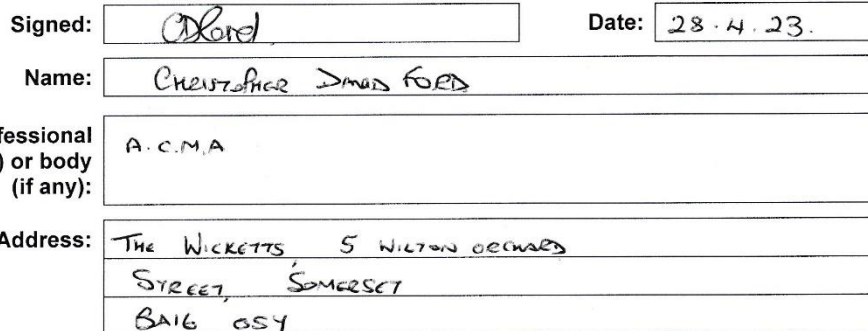 Signed: CDFord Date: 28.4.23.
Name: CHRISTOPHER DAVID FORD
fessional
) or body
(if any): A.C.M.A
Address: THE WICKETTS, 5 WILTON ORCHARD
STREET, SOMERSET
BA16 0SY